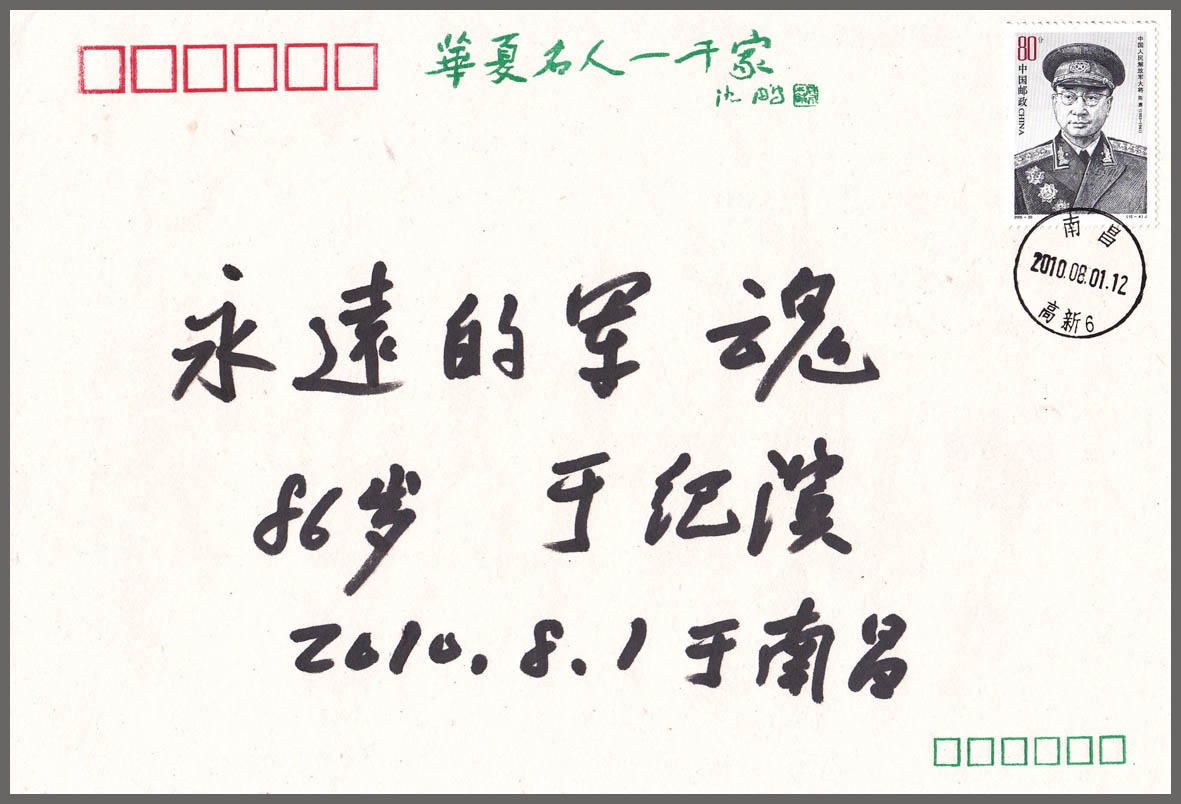 華夏名人一千家
沈鹏
80分
中国邮政 CHINA
中国人民解放军大将
南昌
2010.08.01.12
高新6
永遠的军魂
86岁 于纪
2010.8.1于南昌